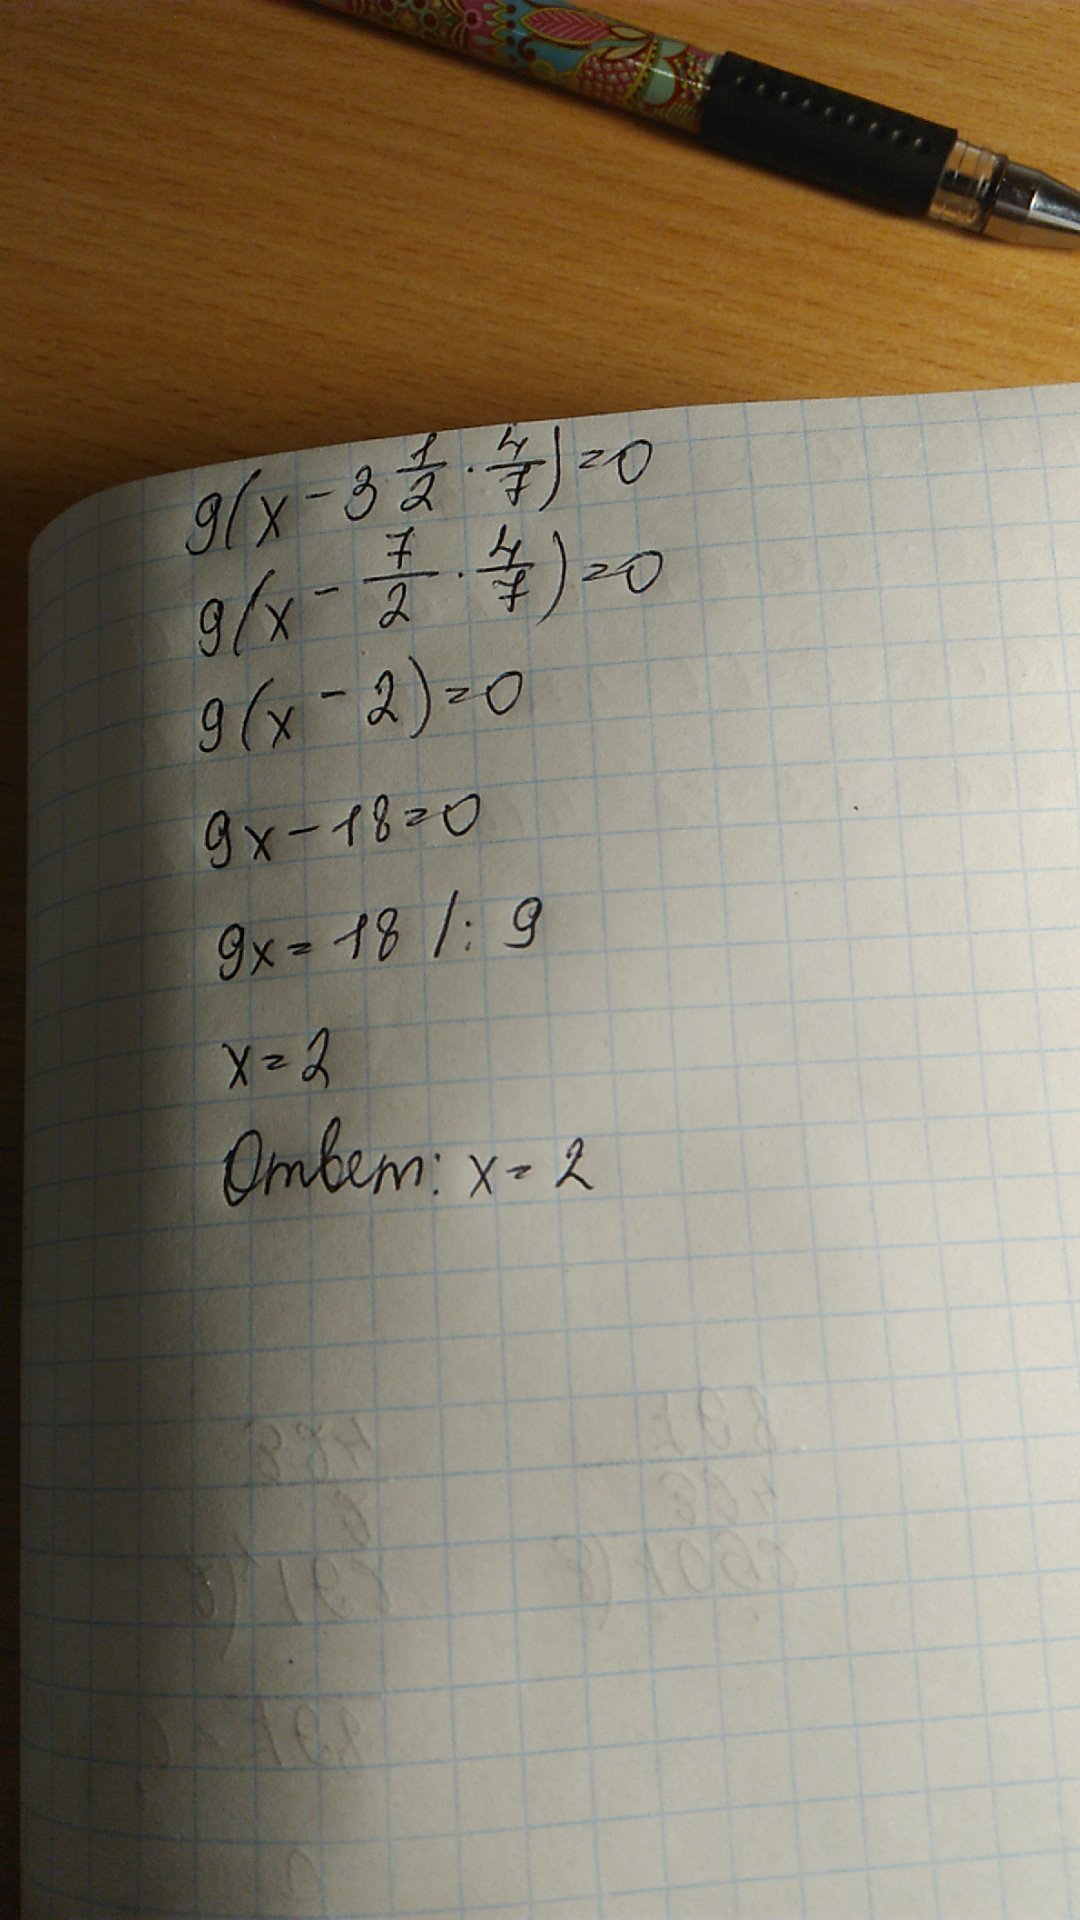 9(x - 3 1/2 · 4/7) = 0
9(x - 7/2 · 4/7) = 0
9(x - 2) = 0
9x - 18 = 0
9x = 18 /: 9
x = 2
Ответ: x = 2